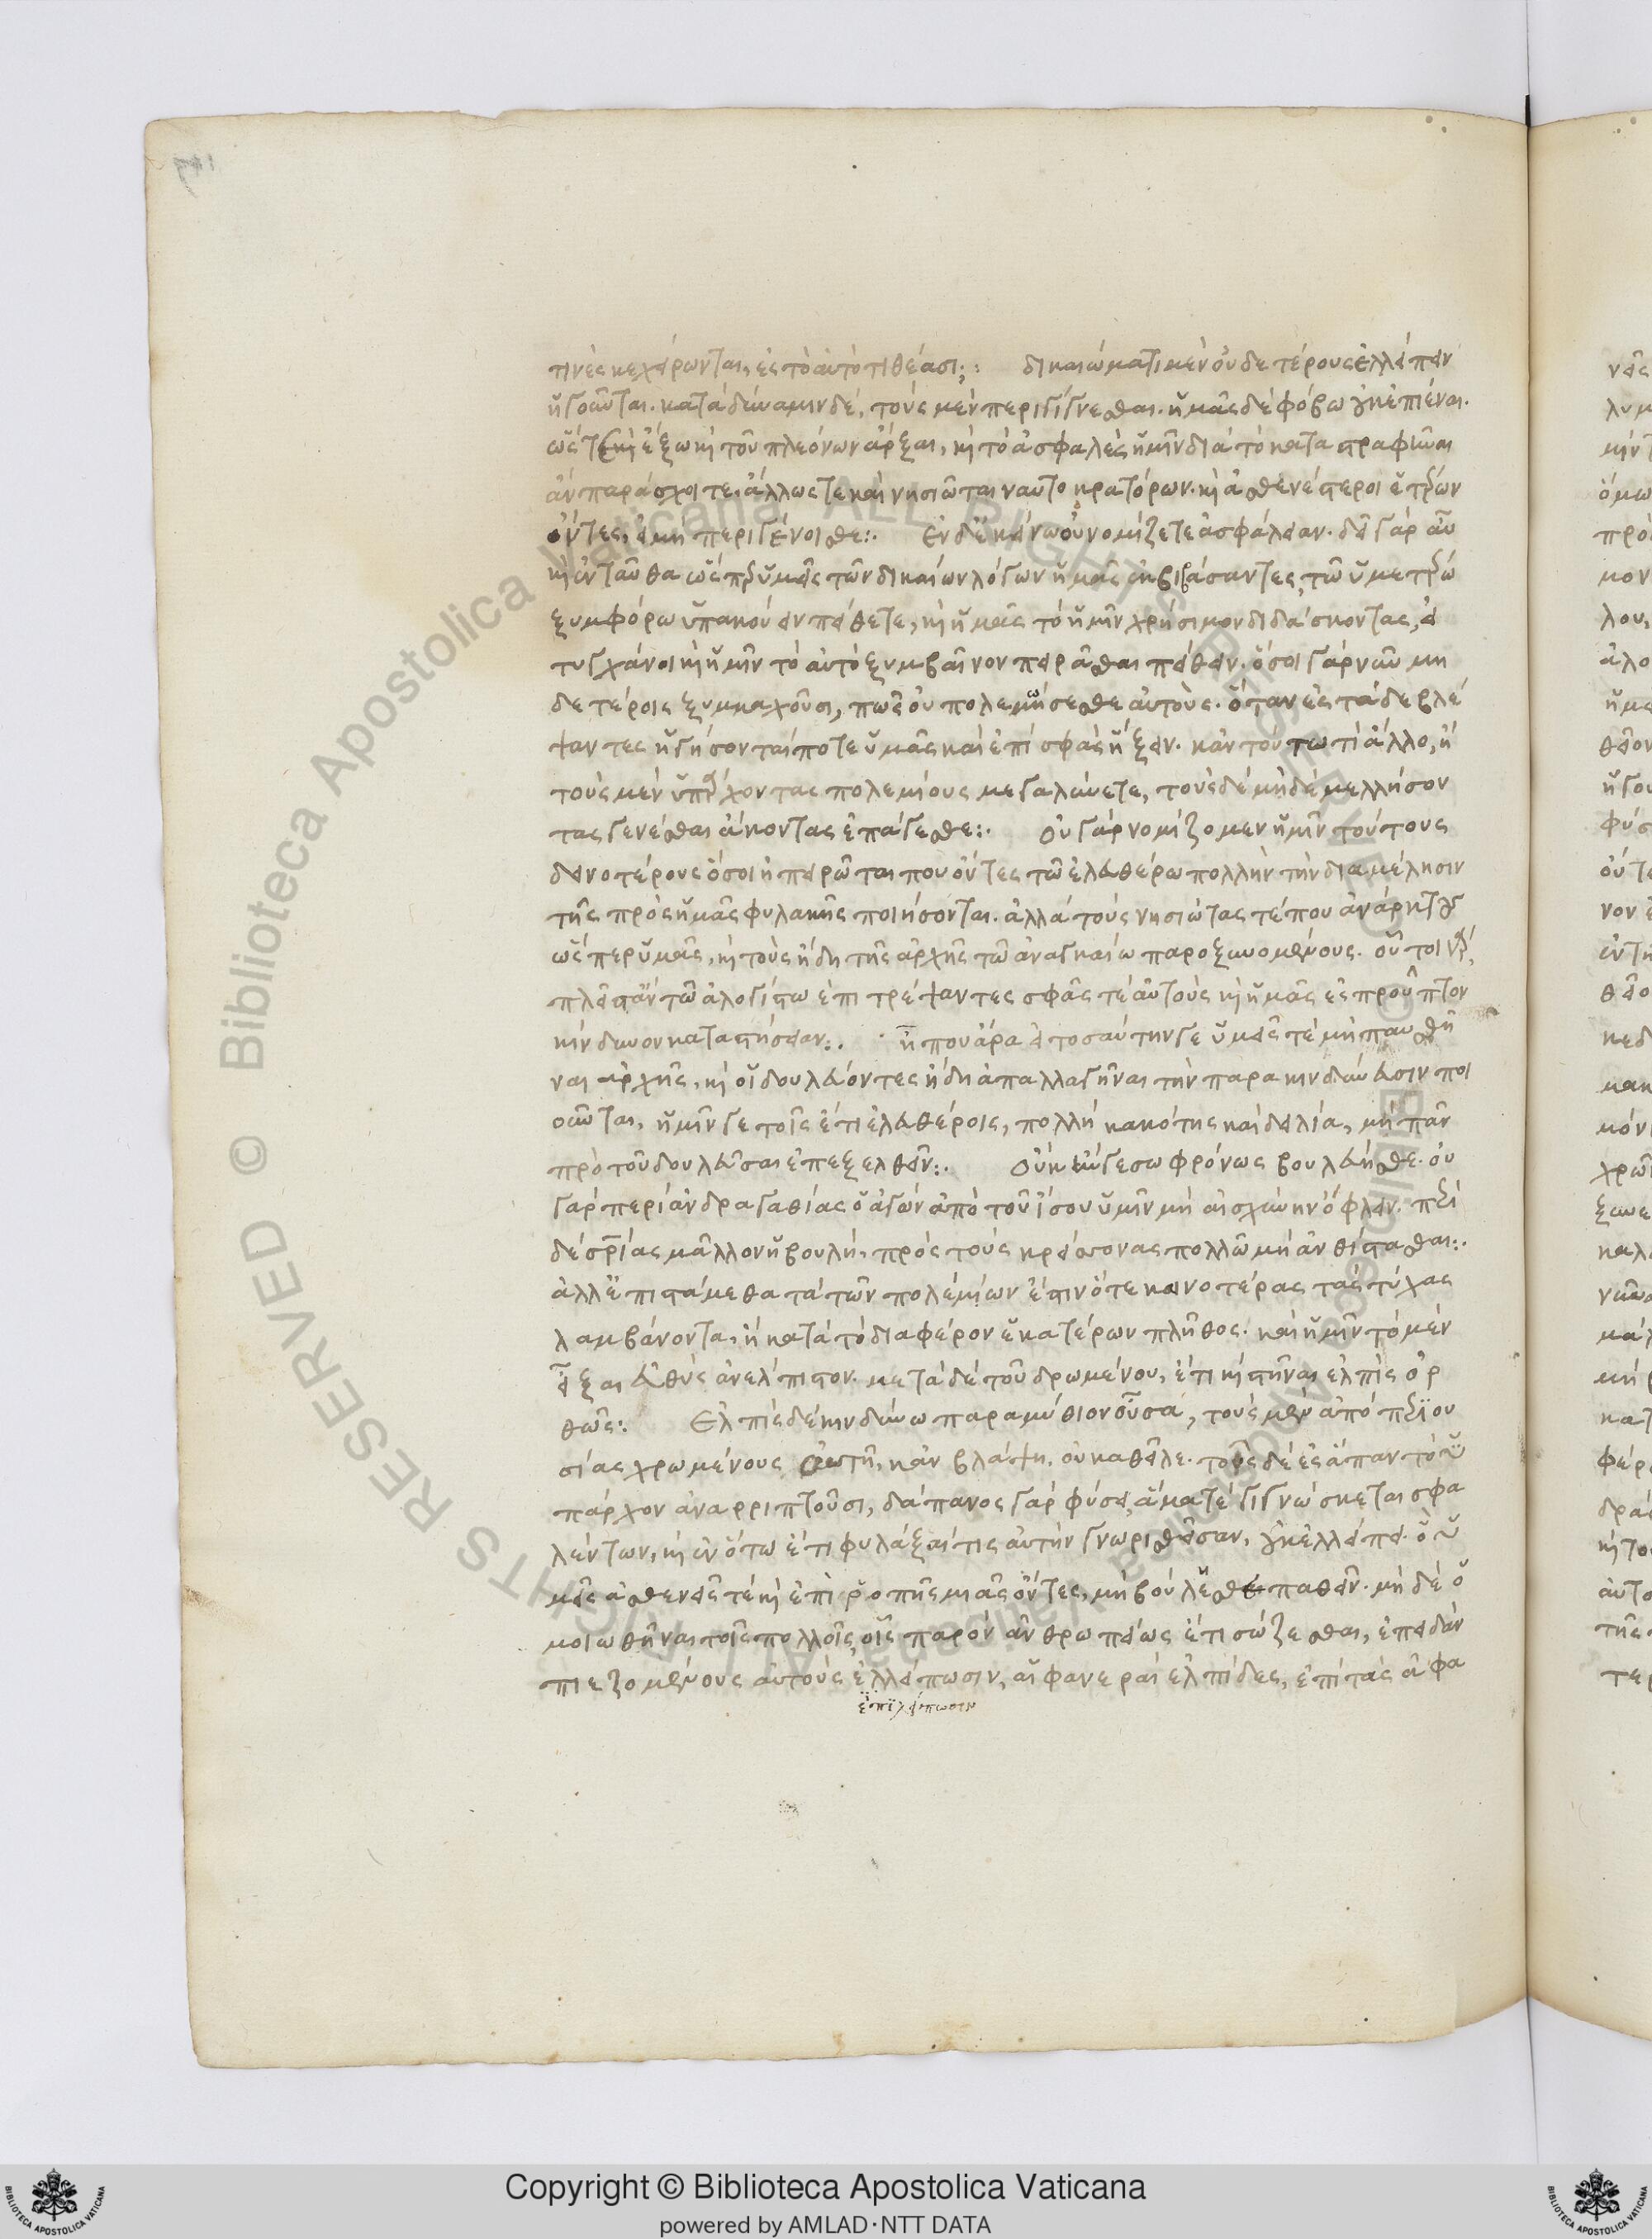 τινὲς κεχείρωνται, ἐς τὸ αὐτὸ τιθέασι; : δικαιώματι μὲν οὐδετέρους ἐλλείπειν
ἡγοῦνται. κατὰ δύναμιν δὲ, τοὺς μὲν περιγίγνεσθαι. ἡμᾶς δὲ φόβω οὐκ ἐπιέναι.
ὥστε καὶ ἔξω καὶ τοῦ πλεόνων ἄρξαι, καὶ τὸ ἀσφαλὲς ἡμῖν διὰ τὸ καταστραφῆναι
ἂν παράσχοιτε. ἄλλως τε καὶ νησιῶται ναυτοκρατόρων. καὶ ἀσθενέστεροι ἑτέρων
ὄντες, εἰ μὴ περιγένοισθε :. Ἐν δ' ἐκείνω οὐ νομίζετε ἀσφάλειαν. δεῖ γὰρ αὖ
καὶ ἐνταῦθα ὥσπερ ὑμεῖς τῶν δικαίων λόγων ἡμᾶς ἐκβιβάσαντες, τῶ ὑμετέρω
ξυμφόρω ὑπακούειν πείθετε, καὶ ἡμᾶς τὸ ἡμῖν χρήσιμον διδάσκοντας, εἰ
τυγχάνει καὶ ὑμῖν τὸ αὐτὸ ξυμβαῖνον πειρᾶσθαι πείθειν. ὅσοι γὰρ νῦν μη
δετέροις ξυμμαχοῦσι, πῶς οὐ πολεμώσεσθε αὐτοὺς. ὅταν ἐς τάδε βλέ
ψαντες ἡγήσονταί ποτε ὑμᾶς καὶ ἐπὶ σφᾶς ἥξειν. κἀν τούτω τὶ ἄλλο, ἢ
τοὺς μὲν ὑπάρχοντας πολεμίους μεγαλύνετε, τοὺς δὲ μηδὲ μελλήσον
τας γενέσθαι ἄκοντας ἐπάγεσθε :. Οὐ γὰρ νομίζομεν ἡμῖν τούτους
δεινοτέρους ὅσοι ἠπειρῶται που ὄντες τῶ ἐλευθέρω πολλὴν τὴν διαμέλησιν
τῆς πρὸς ἡμᾶς φυλακῆς ποιήσονται. ἀλλὰ τοὺς νησιώτας τέ που ἀνάρκτους
ὥσπερ ὑμᾶς, καὶ τοὺς ἤδη τῆς ἀρχῆς τῶ ἀναγκαίω παροξυνομένους. οὗτοι γὰρ
πλεῖστ' ἂν τῶ ἀλογίστω ἐπιτρέψαντες σφᾶς τε αὐτοὺς καὶ ἡμᾶς ἐς προῦπτον
κίνδυνον καταστήσειαν :. ἦ που ἄρα εἰ τοσαύτην γε ὑμεῖς τε μὴ παυσθῆ
ναι ἀρχῆς, καὶ οἱ δουλεύοντες ἤδη ἀπαλλαγῆναι τὴν παρακινδύνευσιν ποι
οῦνται, ἡμῖν γε τοῖς ἔτι ἐλευθέροις, πολλὴ κακότης καὶ δειλία, μὴ πᾶν
πρὸ τοῦ δουλεῦσαι ἐπεξελθεῖν :. Οὐκ ἤν γε σωφρόνως βουλεύησθε. οὐ
γὰρ περὶ ἀνδραγαθίας ὁ ἀγὼν ἀπὸ τοῦ ἴσου ὑμῖν μὴ αἰσχύνην ὀφλεῖν. περὶ
δὲ σωτηρίας μᾶλλον ἡ βουλὴ, πρὸς τοὺς κρείσσονας πολλῶ μὴ ἀνθίστασθαι :.
ἀλλ' ἐπιστάμεθα τὰ τῶν πολέμίων ἔστιν ὅτε κοινοτέρας τὰς τύχας
λαμβάνοντα, ἢ κατὰ τὸ διαφέρον ἑκατέρων πλῆθος. καὶ ἡμῖν τὸ μὲν
εἶξαι εὐθὺς ἀνέλπιστον. μετὰ δὲ τοῦ δρωμένου, ἔτι καὶ στῆναι ἐλπὶς ὀρ
θῶς : Ἐλπὶς δὲ κινδύνω παραμύθιον οὖσα, τοὺς μὲν ἀπὸ περιου
σίας χρωμένους αὐτῆ, κἂν βλάψη, οὐ καθεῖλε. τοῖς δὲ ἐς ἅπαν τὸ ὑ
πάρχον ἀναρριπτοῦσι, δάπανος γὰρ φύσει, ἅμα τὲ γιγνώσκεται σφα
λέντων, καὶ ἐν ὅτω ἔτι φυλάξαί τις αὐτὴν γνωρισθεῖσαν, οὐκ ἐλλείπει. ὃ ὑ
μεῖς ἀσθενεῖς τὲ καὶ ἐπὶ ῥοπῆς μιᾶς ὄντες, μὴ βούλεσθε παθεῖν. μὴ δὲ ὁ
μοιωθῆναι τοῖς πολλοῖς, οἷς παρὸν ἀνθρωπείως ἔτι σώζεσθαι, ἐπειδὰν
πιεζομένους αὐτοὺς ἐλλείπωσιν, αἱ φανεραὶ ἐλπίδες, ἐπὶ τὰς ἀφα
ἐπιλείπωσιν
© Biblioteca Apostolica Vaticana ALL RIGHTS RESERVED
Copyright © Biblioteca Apostolica Vaticana
powered by AMLAD·NTT DATA